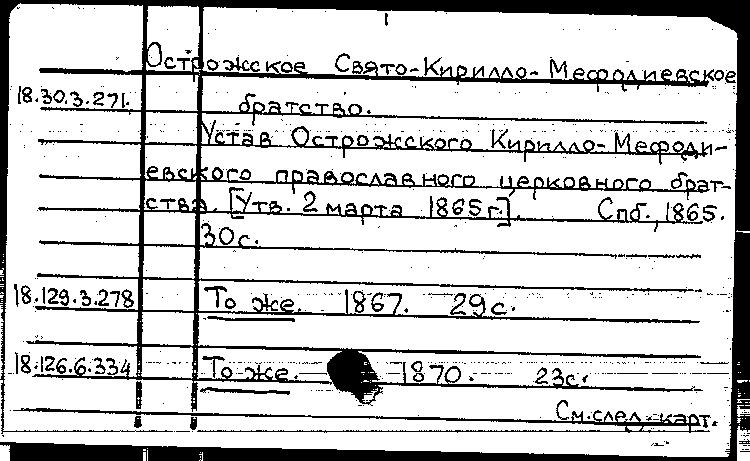 Острожское Свято-Кирилло-Мефодиевское
18.30.3.271. братство.
Устав Острожского Кирилло-Мефоди-
евского православного церковного брат-
ства. [Утв. 2 марта 1865 г.]. Спб., 1865.
30 с.
18.129.3.278 То же. 1867. 29 с.
18.126.6.334 То же. 1870. 23 с.
См. след. карт.